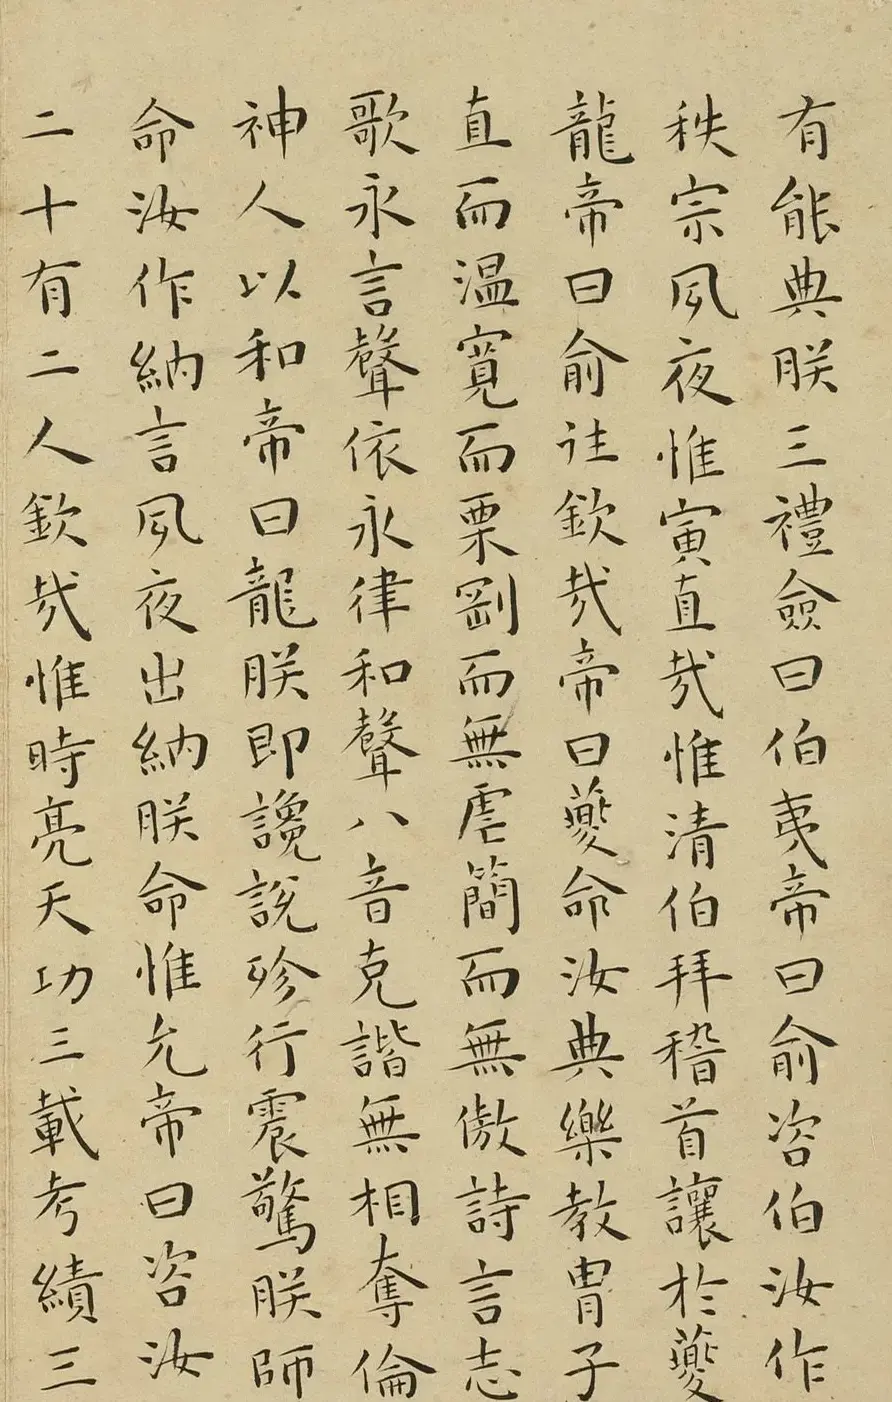 有能典朕三禮僉曰伯夷帝曰俞咨伯汝作
秩宗夙夜惟寅直哉惟清伯拜稽首讓於夔
龍帝曰俞往欽哉帝曰夔命汝典樂教胄子
直而温寬而栗剛而無虐簡而無傲詩言志
歌永言聲依永律和聲八音克諧無相奪倫
神人以和帝曰龍朕即讒說殄行震驚朕師
命汝作納言夙夜出納朕命惟允帝曰咨汝
二十有二人欽哉惟時亮天功三載考績三